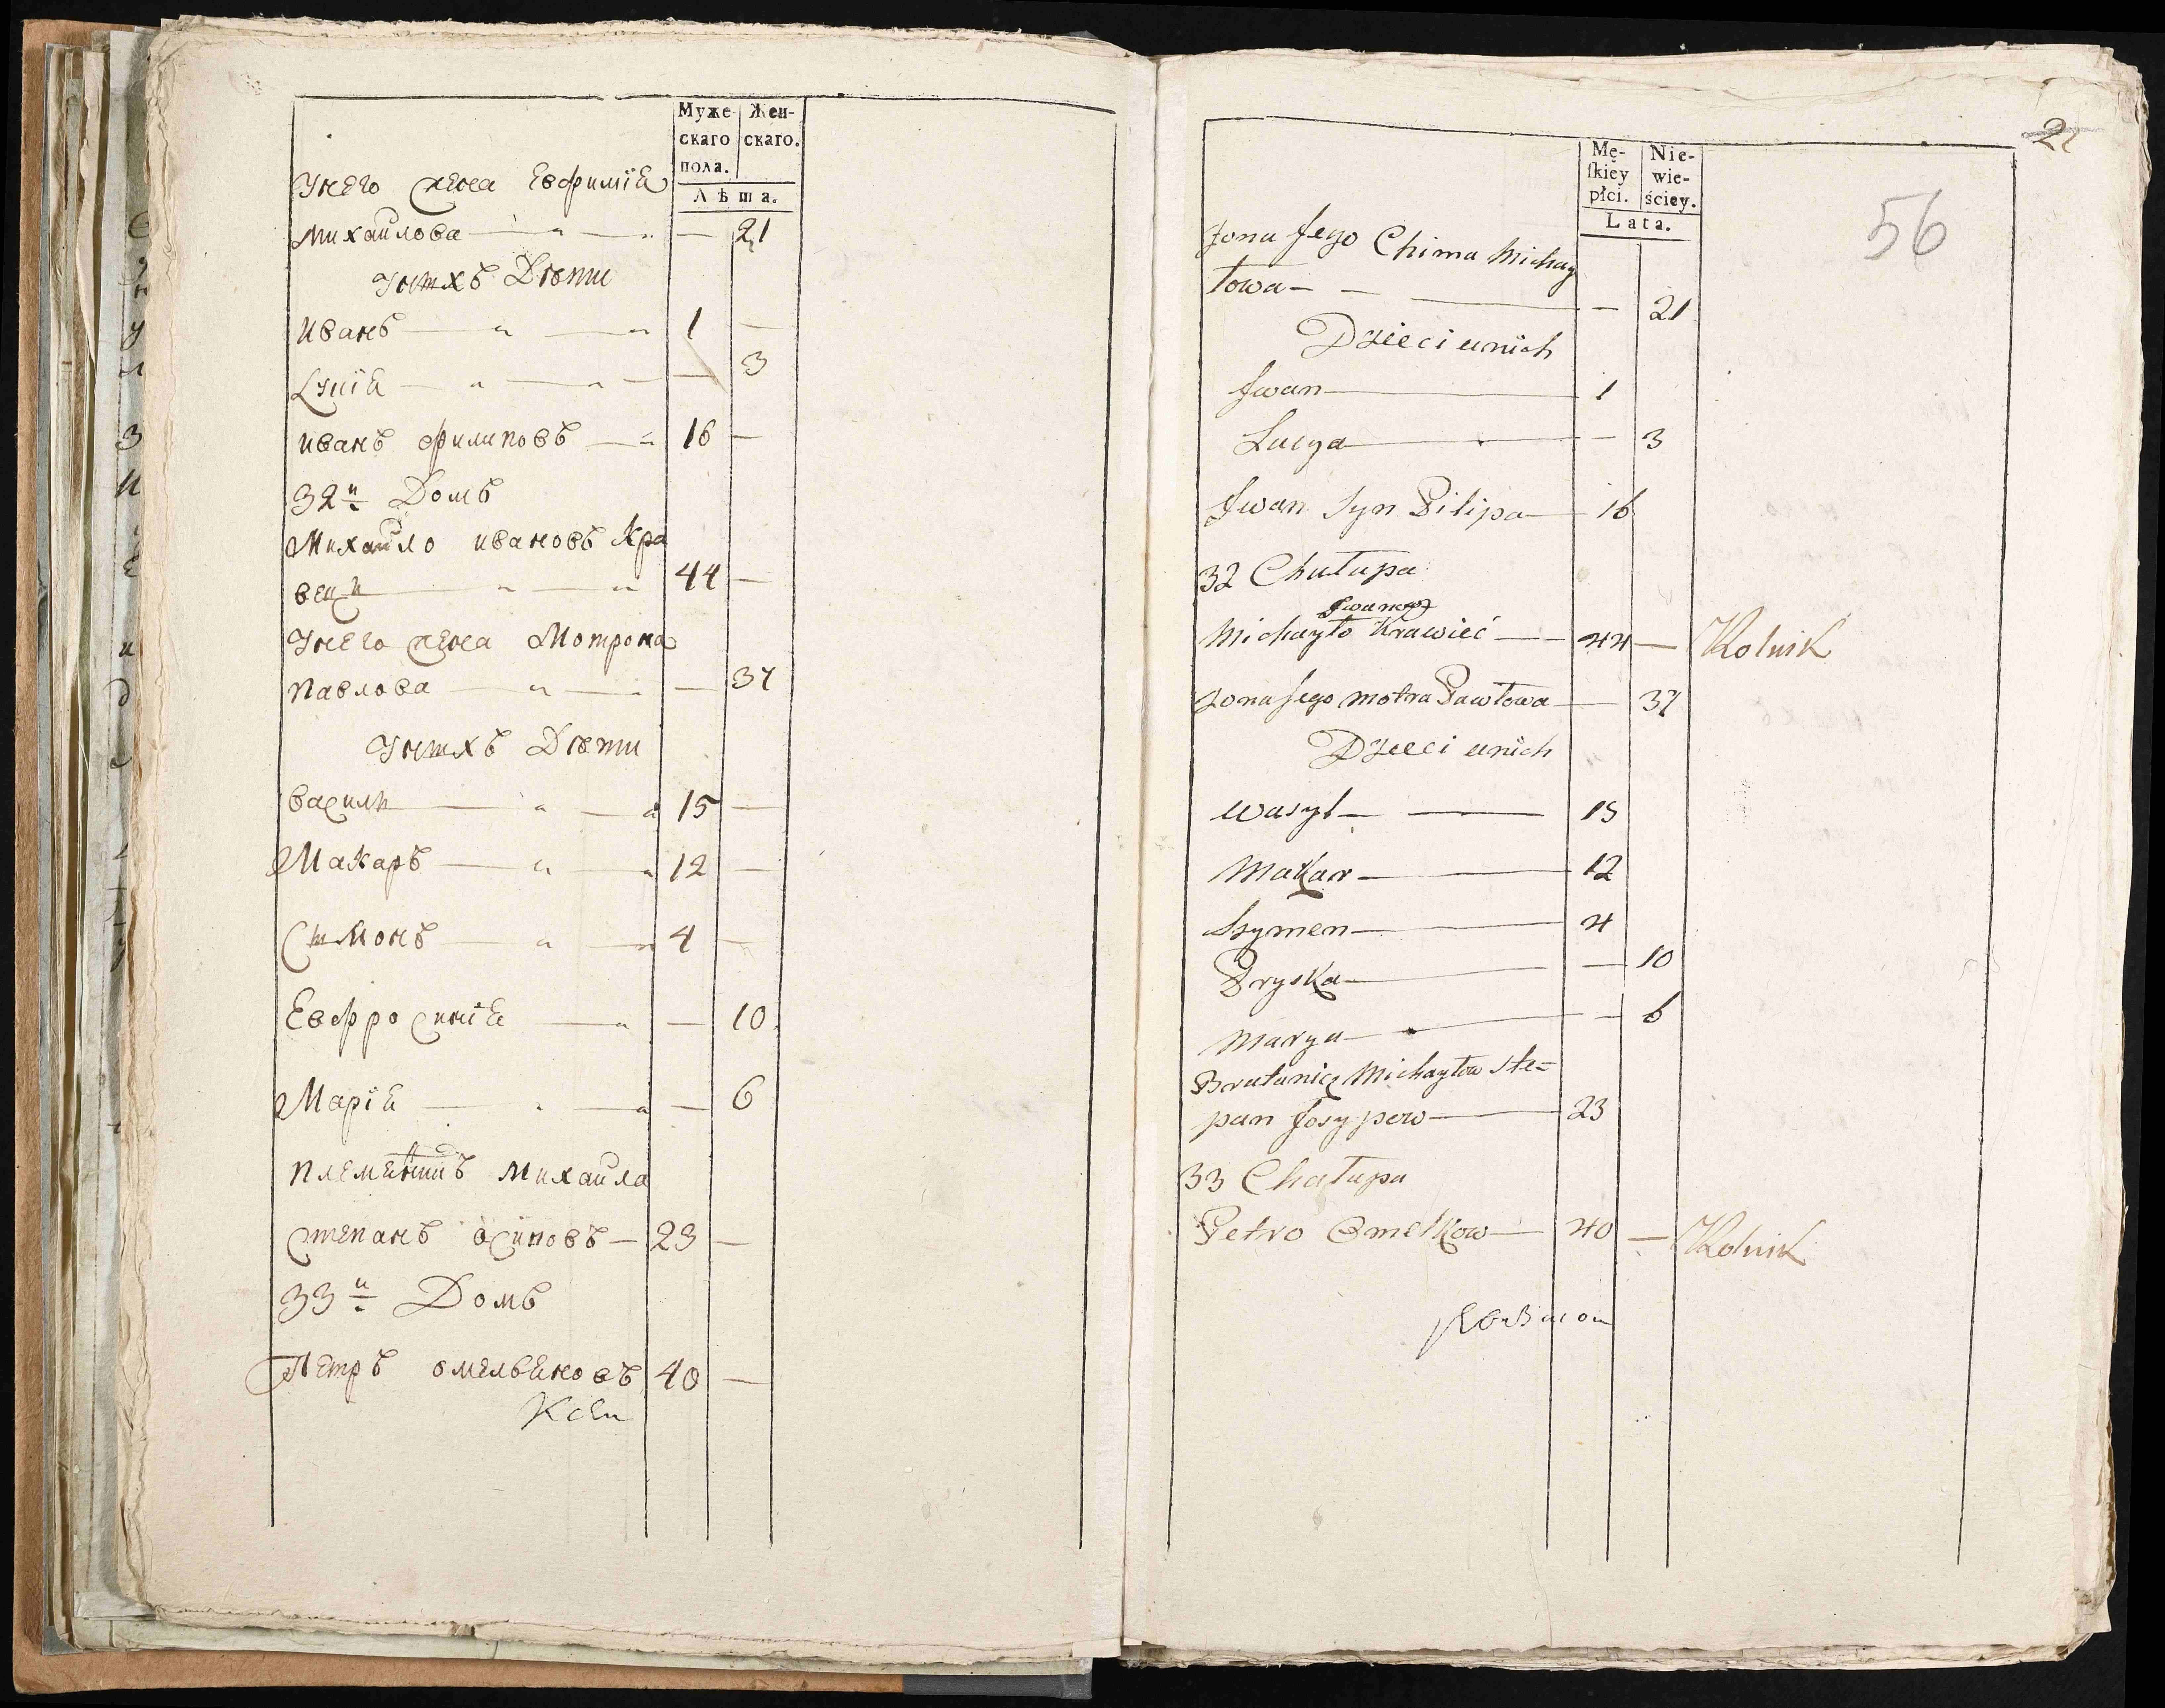 Муже- Жен-
скаго скаго.
пола.
Лѣта.
Унего жена Евфимія
Михаилова — — 21
Унихъ Дѣти
Иванъ — 1 —
Луція — — 3
иванъ филиповъ — 16 —
32й Домъ
Михаило ивановъ Кра
вецъ — 44 —
Унего жена Мотрона
павлова — — 37
Унихъ Дѣти
василь — 15 —
Макаръ — 12 —
Симонъ — 4 —
Евфросинія — — 10
Марія — — 6
племенникъ михаила
степанъ осиповъ — 23 —
33й Домъ
Петръ омельяновъ 40 —
21
56
Mę- Nie-
ſkiey wie-
płci. ściey.
Lata.
Żona Jego Chima Michay
łowa — — 21
Dzieci u nich
Jwan — 1
Lucya — — 3
Jwan Syn Pilipa — 16
32 Chałupa
Jwanow
Michayło Krawieć — 44 — Rolnik
Żona Jego Motra Pawłowa — 37
Dzieci u nich
Wasyl — 15
Makar — 12
Szymen — 4
Pryska — — 10
Marya — — 6
Bratanicz Michayłow Ste=
pan Josypow — 23
33 Chałupa
Petro Omelkow — 40 — Rolnik